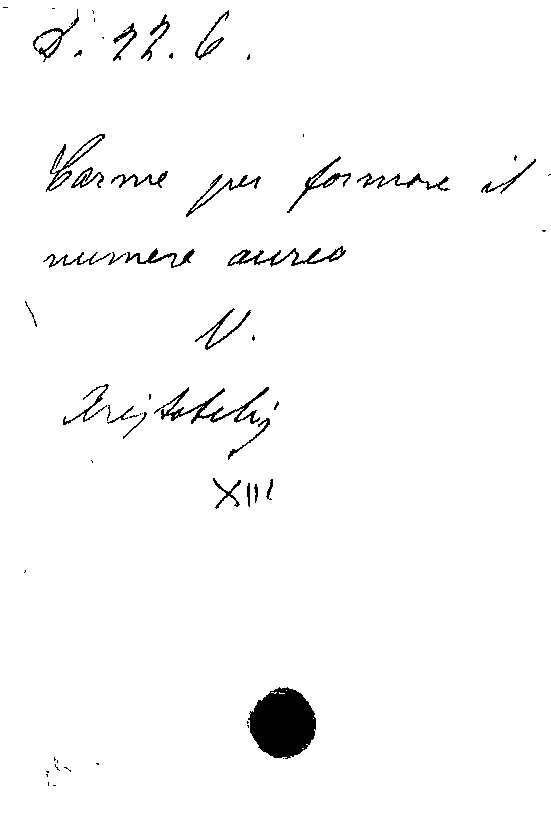 D. 22. 6.
Carme per formare il
numero aureo
V.
Aristotelis
XIII